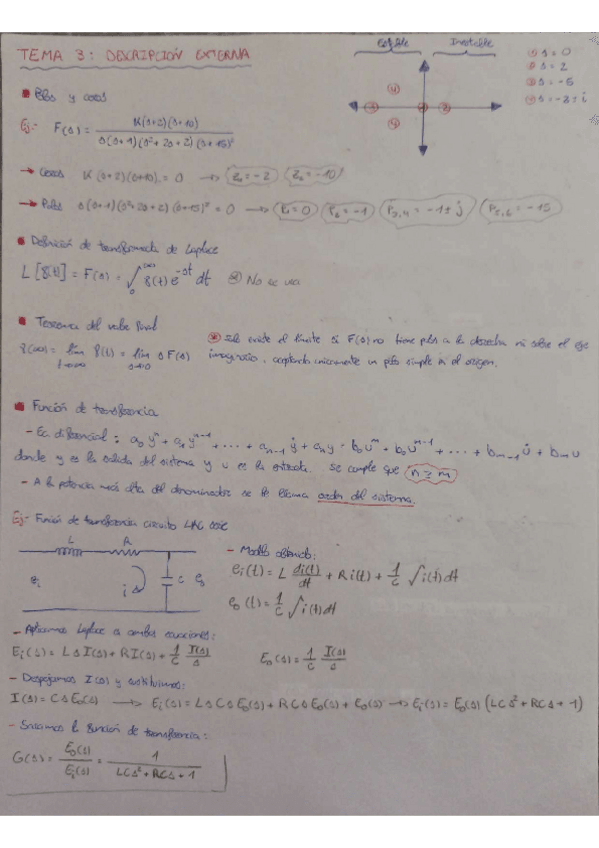 TEMA 3: DESCRIPCIÓN EXTERNA
Estable Inestable
① s = 0
② s = 2
③ s = -5
④ s = -2 ± i
Polos y ceros
Ej:- F(s) = K(s+2)(s+10) / s(s+1)(s²+2s+2)(s+15)²
→ Ceros K(s+2)(s+10) = 0 → Z₁ = -2 Z₂ = -10
→ Polos s(s+1)(s²+2s+2)(s+15)² = 0 → P₁ = 0 P₂ = -1 P₃,₄ = -1 ± j P₅,₆ = -15
Definición de transformada de Laplace
L[f(t)] = F(s) = ∫₀^∞ f(t) e^-st dt ⊛ No se usa
Teorema del valor final
f(∞) = lim f(t) = lim s F(s)
t→∞ s→0
⊛ Solo existe el límite si F(s) no tiene polos a la derecha ni sobre el eje
imaginario, aceptando únicamente un polo simple en el origen.
Función de transferencia
- Ec. diferencial: a₀yⁿ + a₁yⁿ⁻¹ + ... + aₙ₋₁ẏ + aₙy = b₀uᵐ + b₀uᵐ⁻¹ + ... + bₘ₋₁u̇ + bₘu
donde y es la salida del sistema y u es la entrada. Se cumple que n ≥ m
- A la potencia más alta del denominador se le llama orden del sistema.
Ej:- Función de transferencia circuito LRC serie
L R
eᵢ i C e₀
- Modelo obtenido:
eᵢ(t) = L di(t)/dt + R i(t) + 1/C ∫ i(t) dt
e₀(t) = 1/C ∫ i(t) dt
- Aplicamos Laplace a ambas ecuaciones:
Eᵢ(s) = L s I(s) + R I(s) + 1/C I(s)/s E₀(s) = 1/C I(s)/s
- Despejamos I(s) y sustituimos:
I(s) = C s E₀(s) → Eᵢ(s) = L s C s E₀(s) + R C s E₀(s) + E₀(s) → Eᵢ(s) = E₀(s) (LCs² + RCs + 1)
- Sacamos la función de transferencia:
G(s) = E₀(s)/Eᵢ(s) = 1 / LCs² + RCs + 1